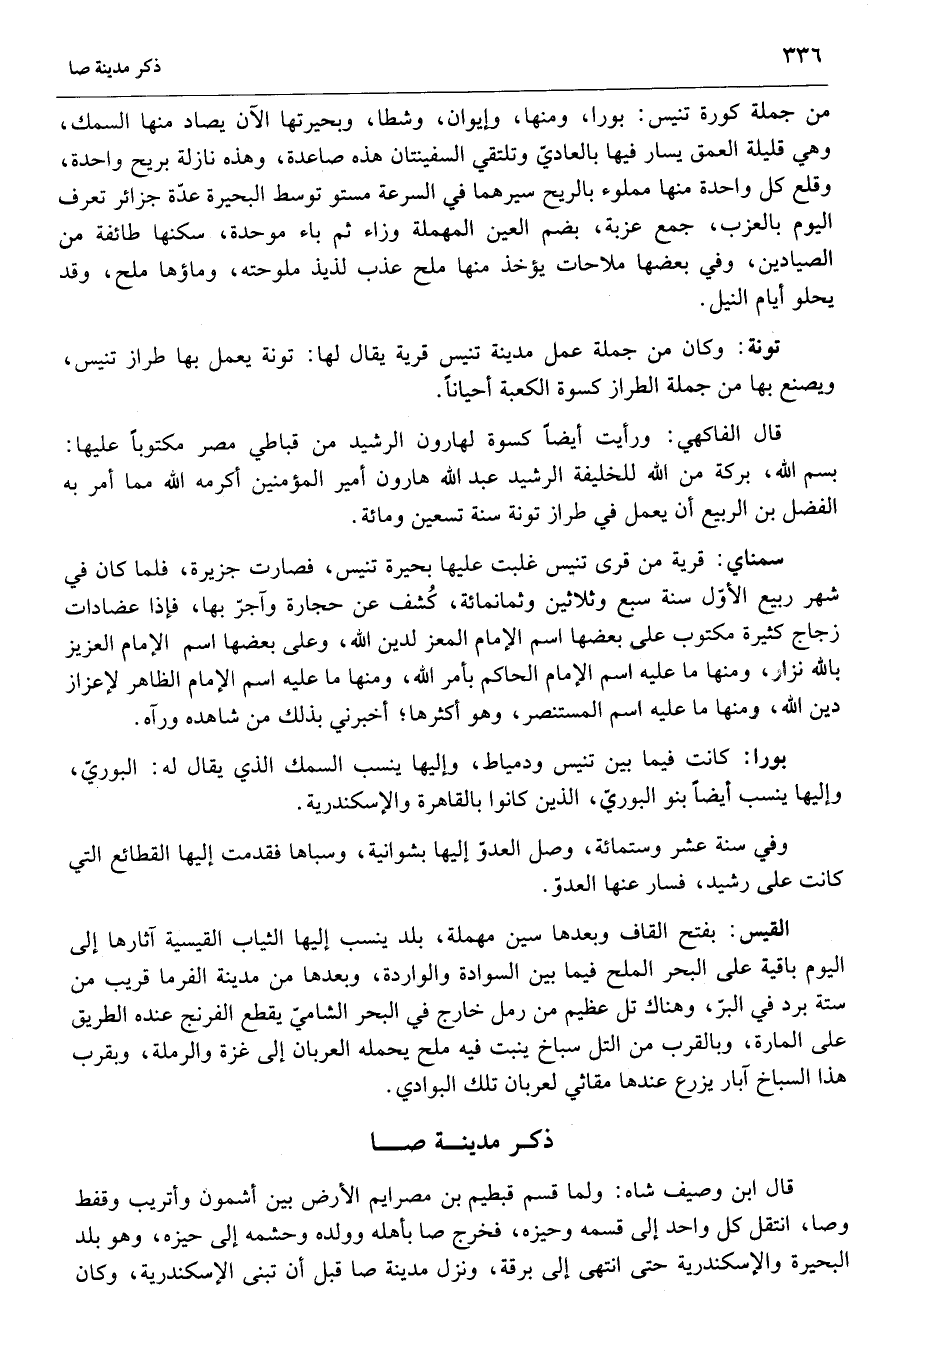 ٣٣٦
ذكر مدينة صا
من جملة كورة تنيس: بورا، ومنها، وإيوان، وشطا، وبحيرتها الآن يصاد منها السمك،
وهي قليلة العمق يسار فيها بالعاديّ وتلتقي السفينتان هذه صاعدة، وهذه نازلة بريح واحدة،
وقلع كل واحدة منها مملوء بالريح سيرهما في السرعة مستو توسط البحيرة عدّة جزائر تعرف
اليوم بالعزب، جمع عزبة، بضم العين المهملة وزاء ثم باء موحدة، سكنها طائفة من
الصيادين، وفي بعضها ملاحات يؤخذ منها ملح عذب لذيذ ملوحته، وماؤها ملح، وقد
يحلو أيام النيل.
تونة: وكان من جملة عمل مدينة تنيس قرية يقال لها: تونة يعمل بها طراز تنيس،
ويصنع بها من جملة الطراز كسوة الكعبة أحياناً.
قال الفاكهي: ورأيت أيضاً كسوة لهارون الرشيد من قباطي مصر مكتوباً عليها:
بسم الله، بركة من الله للخليفة الرشيد عبد الله هارون أمير المؤمنين أكرمه الله مما أمر به
الفضل بن الربيع أن يعمل في طراز تونة سنة تسعين ومائة.
سمناي: قرية من قرى تنيس غلبت عليها بحيرة تنيس، فصارت جزيرة، فلما كان في
شهر ربيع الأوّل سنة سبع وثلاثين وثمانمائة، كُشف عن حجارة وآجرّ بها، فإذا عضادات
زجاج كثيرة مكتوب على بعضها اسم الإمام المعز لدين الله، وعلى بعضها اسم الإمام العزيز
بالله نزار، ومنها ما عليه اسم الإمام الحاكم بأمر الله، ومنها ما عليه اسم الإمام الظاهر لإعزاز
دين الله، ومنها ما عليه اسم المستنصر، وهو أكثرها؛ أخبرني بذلك من شاهده ورآه.
بورا: كانت فيما بين تنيس ودمياط، وإليها ينسب السمك الذي يقال له: البوريّ،
وإليها ينسب أيضاً بنو البوريّ، الذين كانوا بالقاهرة والإسكندرية.
وفي سنة عشر وستمائة، وصل العدوّ إليها بشوانية، وسباها فقدمت إليها القطائع التي
كانت على رشيد، فسار عنها العدوّ.
القيس: بفتح القاف وبعدها سين مهملة، بلد ينسب إليها الثياب القيسية آثارها إلى
اليوم باقية على البحر الملح فيما بين السوادة والواردة، وبعدها من مدينة الفرما قريب من
ستة برد في البرّ، وهناك تل عظيم من رمل خارج في البحر الشاميّ يقطع الفرنج عنده الطريق
على المارة، وبالقرب من التل سباخ ينبت فيه ملح يحمله العربان إلى غزة والرملة، وبقرب
هذا السباخ آبار يزرع عندها مقاثي لعربان تلك البوادي.
ذكر مدينة صا
قال ابن وصيف شاه: ولما قسم قبطيم بن مصرايم الأرض بين أشمون وأتريب وقفط
وصا، انتقل كل واحد إلى قسمه وحيزه، فخرج صا بأهله وولده وحشمه إلى حيزه، وهو بلد
البحيرة والإسكندرية حتى انتهى إلى برقة، ونزل مدينة صا قبل أن تبنى الإسكندرية، وكان